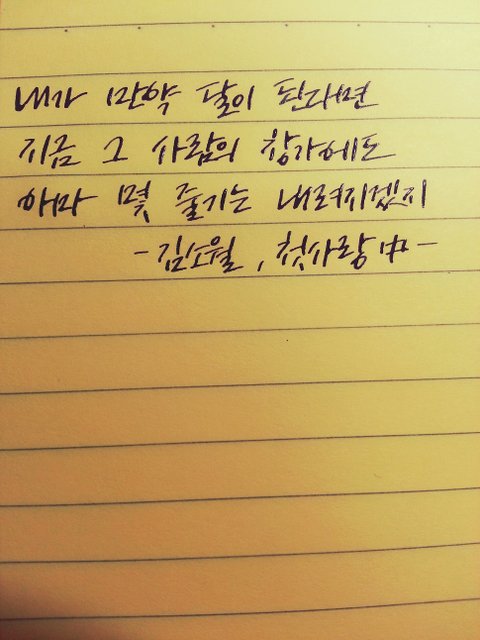 내가 만약 달이 된다면
지금 그 사람의 창가에도
아마 몇 줄기는 내려지겠지
-김소월, 첫사랑 中-